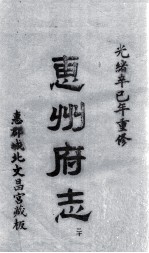 光緒辛巳年重修
惠州府志
二十
惠郡城北文昌宮藏板